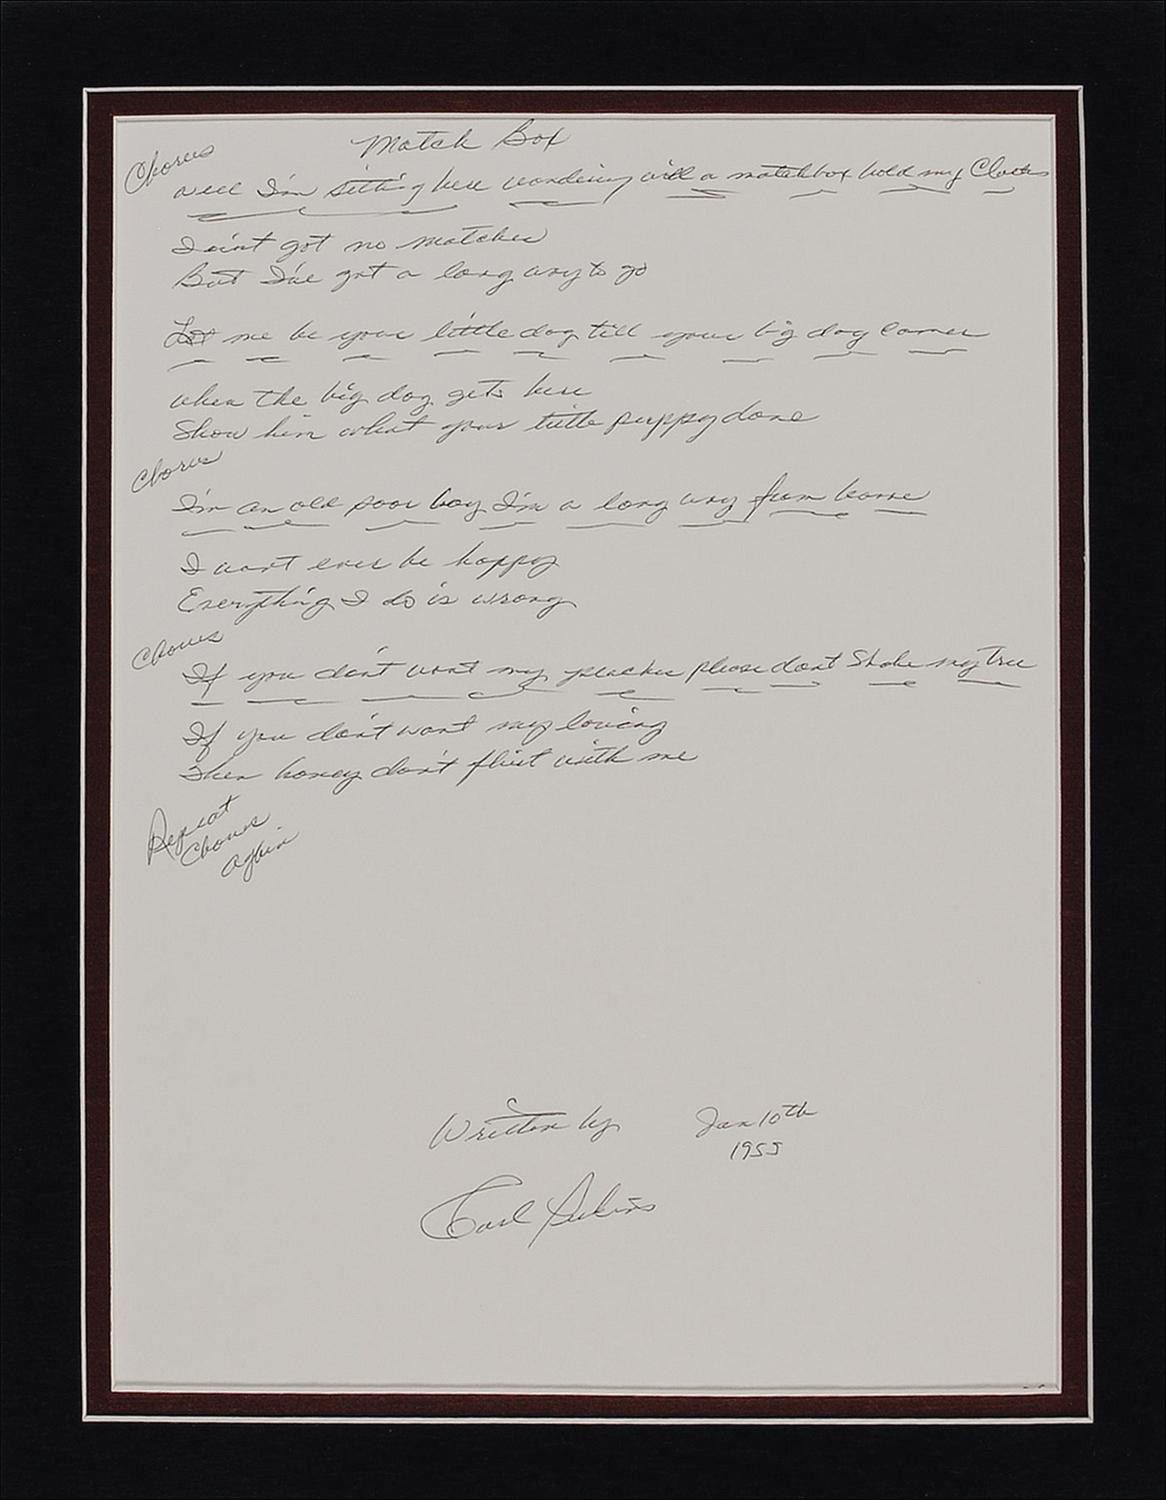 Match Box
Chorus
well I'm sitting here wondering will a matchbox hold my Clothes
I aint got no matches
But I've got a long way to go
Let me be your little dog till your big dog comes
when the big dog gets here
Show him what your little puppy done
Chorus
I'm an old poor boy I'm a long way from home
I wont ever be happy
Everything I do is wrong
Chorus
If you don't want my peaches please dont Shake my tree
If you don't want my loving
Then honey don't flirt with me
Repeat
Chorus
again
Written by Jan 10th
1955
Carl Perkins